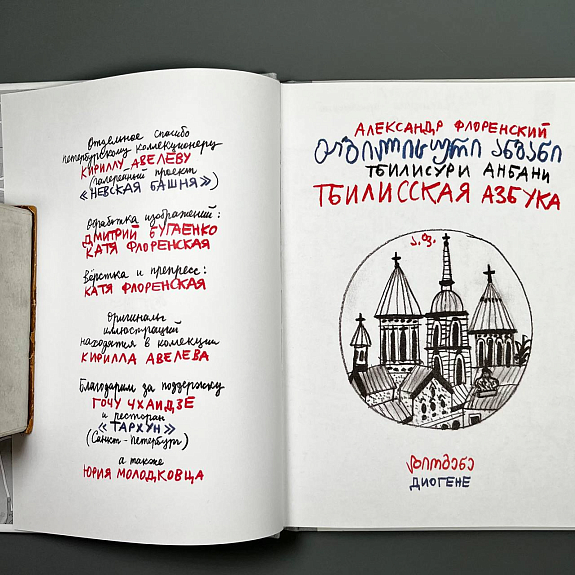 Отдельное спасибо
петербургскому коллекционеру
КИРИЛЛУ АВЕЛЕВУ
(галерейный проект
«НЕВСКАЯ БАШНЯ»)
Обработка изображений:
ДМИТРИЙ БУГАЕНКО
КАТЯ ФЛОРЕНСКАЯ
Вёрстка и препресс:
КАТЯ ФЛОРЕНСКАЯ
Оригиналы
иллюстраций
находятся в коллекции
КИРИЛЛА АВЕЛЕВА
Благодарим за поддержку
ГОЧУ ЧХАИДЗЕ
и ресторан
«ТАРХУН»
(Санкт-Петербург)
а также
ЮРИЯ МОЛОДКОВЦА
АЛЕКСАНДР ФЛОРЕНСКИЙ
თბილისური ანბანი
ТБИЛИСУРИ АНБАНИ
ТБИЛИССКАЯ АЗБУКА
ა.ფ.
დიოგენე
ДИОГЕНЕ